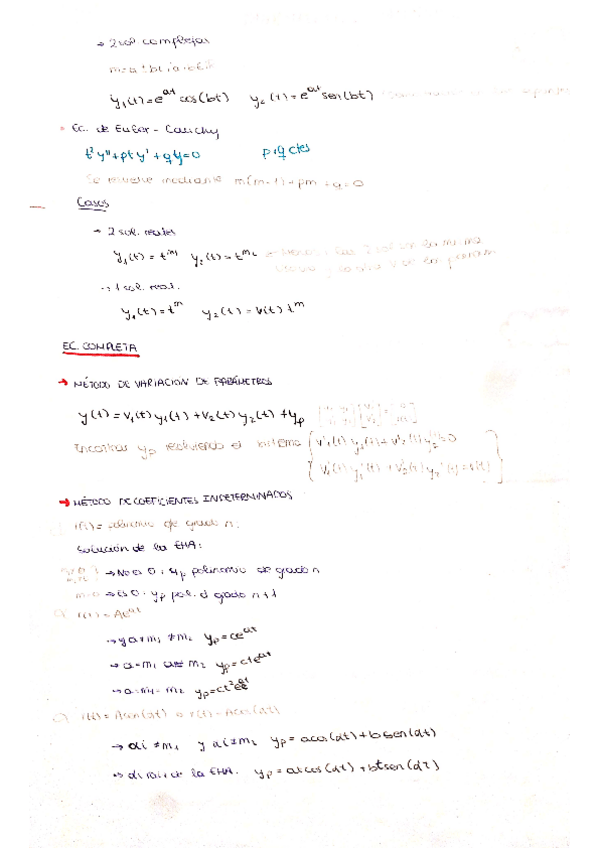 → 2 sol complejas
y₁(t)=e^at cos(bt) y₂(t)=e^at sen(bt)
Ec. de Euler-Cauchy
t²y''+pty'+qy=0 p,q ctes
Se resuelve mediante m(m-1)+pm+q=0
Casos
→ 2 sol. reales
y₁(t)=t^m₁ y₂(t)=t^m₂
→ 1 sol. real.
y₁(t)=t^m y₂(t)=v(t)t^m
EC. COMPLETA
→ MÉTODO DE VARIACION DE PARÁMETROS
y(t)=v₁(t)y₁(t)+v₂(t)y₂(t)+yp
Encontrar yp resolviendo el sistema
v₁'(t)y₁(t)+v₂'(t)y₂(t)=0
v₁'(t)y₁'(t)+v₂'(t)y₂'(t)=r(t)
→ MÉTODO DE COEFICIENTES INDETERMINADOS
r(t)= de grado n.
Solución de la EHA:
→ No es 0: yp polinomio de grado n
m=0 → Es 0: yp pol. d grado n+1
r(t)=Ae^at
→ y a≠m₁ ≠m₂ yp=ce^at
→ a=m₁ a≠m₂ yp=cte^at
→ a=m₁=m₂ yp=ct²e^at
r(t)=Asen(αt) o r(t)=Acos(αt)
→ αi ≠m₁ y αi≠m₂ yp=acos(αt)+bsen(αt)
→ de la EHA. yp=atcos(αt)+btsen(αt)